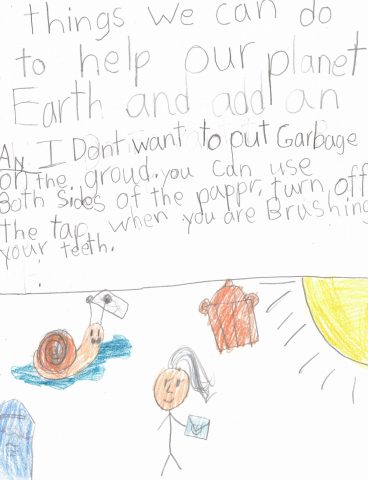 things we can do
to help our planet
Earth and add an
An I Dont want to put Garbage
on the groud. you can use
Both sides of the pappr, turn off
the tap when you are Brushing
your teeth.